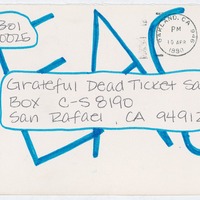 B01
0026
OAKLAND, CA 946
PM
15 APR
1990
Grateful Dead Ticket Sa
Box C-S 8190
San Rafael, CA 94912